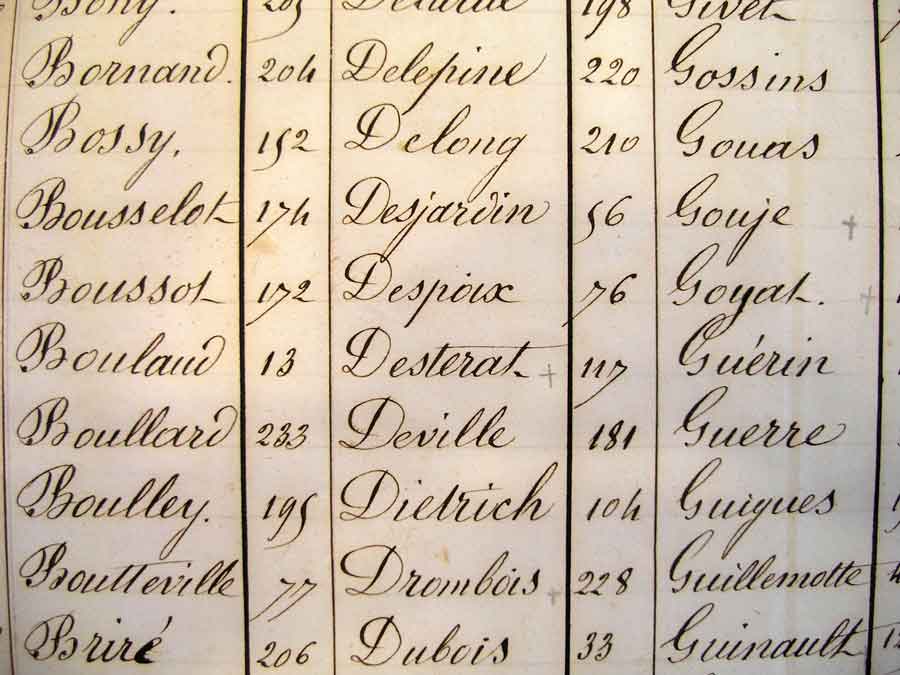 Bony. 205 Delarue 198 Givet
Bornand. 204 Delepine 220 Gossins
Bossy. 152 Delong 210 Gouas
Bousselot 174 Desjardin 56 Gouje +
Boussot 172 Despoix 76 Goyat. +
Boulaud 13 Desterat + 117 Guérin
Boullard 233 Deville 181 Guerre
Boulley. 195 Dietrich 104 Guigues
Boutteville 77 Drombois + 228 Guillemotte
Briré 206 Dubois 33 Guinault